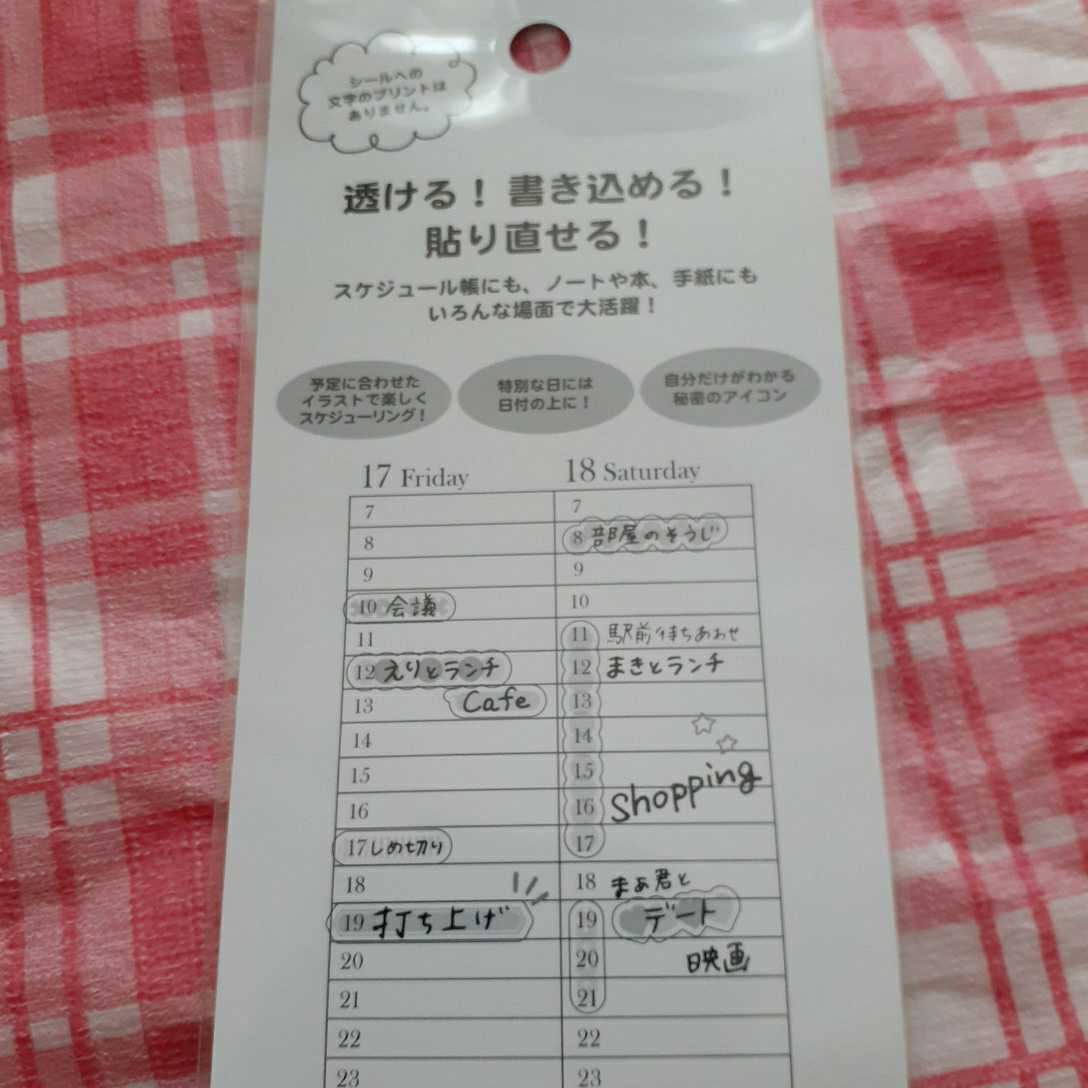 シールへの
文字のプリントは
ありません。
透ける！書き込める！
貼り直せる！
スケジュール帳にも、ノートや本、手紙にも
いろんな場面で大活躍！
予定に合わせた
イラストで楽しく
スケジューリング！
特別な日には
日付の上に！
自分だけがわかる
秘密のアイコン
17 Friday
7
8
9
10 会議
11
12 えりとランチ
13 Cafe
14
15
16
17 しめ切り
18
19 打ち上げ
20
21
22
23
18 Saturday
7
8 部屋のそうじ
9
10
11 駅前待ちあわせ
12 まきとランチ
13
14
15 Shopping
16
17
18 まぁ君と
19 デート
20 映画
21
22
23